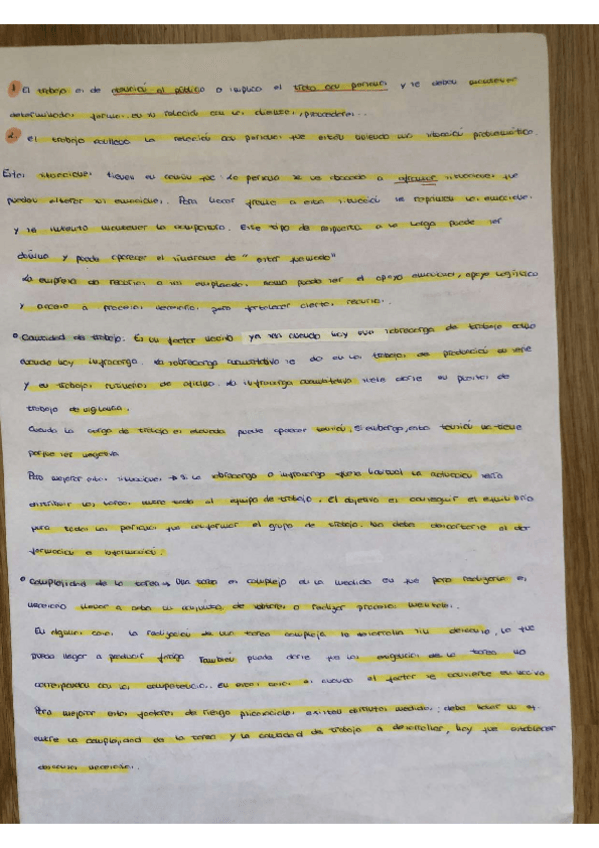 1. El trabajo es de atención al público o implica el trato con personas y se deben mantener
determinadas formas en su relación con los clientes, proveedores...
2. El trabajo conlleva la relación con personas que estén viviendo una situación problemática.
Estas situaciones tienen en común que la persona se ve abocada a afrontar situaciones que
puedan alterar sus emociones. Para hacer frente a esta situación se reprimen las emociones
y se intenta mantener la compostura. Este tipo de respuesta a la larga puede ser
dañina y puede aparecer el síndrome de "estar quemado"
La empresa da recursos a sus empleados, como puede ser el apoyo emocional, apoyo logístico
y acceso a procesos necesarios para fortalecer ciertos recursos.
• Cantidad de trabajo. Es un factor nocivo ya sea cuando hay una sobrecarga de trabajo como
cuando hay infracarga. La sobrecarga cuantitativa se da en los trabajos de producción en serie
y en trabajos rutinarios de oficina. La infracarga cuantitativa suele darse en puestos de
trabajo de vigilancia.
Cuando la carga de trabajo es elevada puede aparecer tensión, sin embargo, esta tensión no tiene
porque ser negativa
Para mejorar estas situaciones → Si la sobrecarga o infracarga fuera laboral la actuación sería
distribuir las tareas entre todo el equipo de trabajo. El objetivo es conseguir el equilibrio
para todas las personas que conforman el grupo de trabajo. No debe descartarse el dar
formación e información.
• Complejidad de la tarea → Una tarea es compleja en la medida en que para realizarla es
necesario llevar a cabo un conjunto de o realizar procesos mentales.
En algunos casos la realización de una tarea compleja se desarrolla sin descanso, lo que
puede llegar a producir fatiga. También puede darse que las exigencias de la tarea no
correspondan con las competencias. En estos casos es cuando el factor se convierte en nocivo
Para mejorar estos factores de riesgo psicosociales existen distintas medidas: debe haber un eq.
entre la complejidad de la tarea y la cantidad de trabajo a desarrollar, hay que establecer
descansos necesarios.